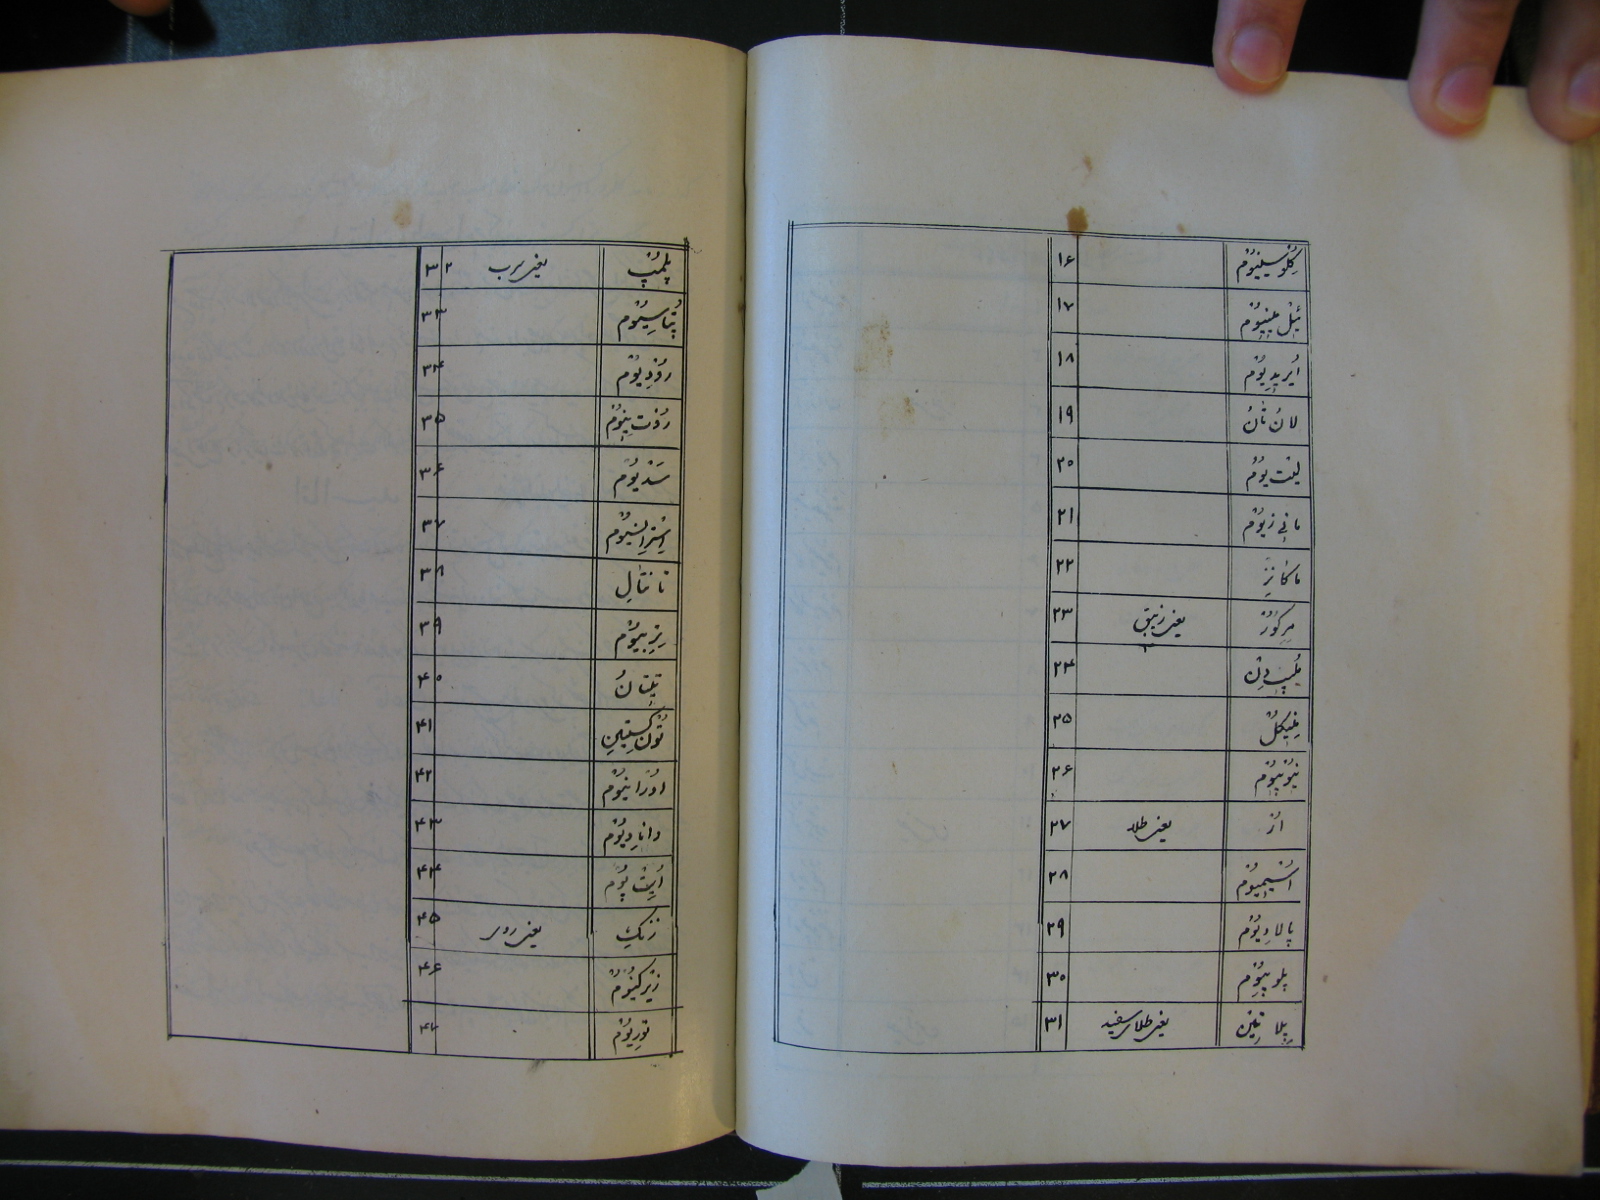 گلوسینیوم ۱۶
ئیل مینیوم ۱۷
ایریدیوم ۱۸
لان تان ۱۹
لیت یوم ۲۰
مانی زیوم ۲۱
ماکانز ۲۲
مرکور یعنی زیبق ۲۳
ملیب دن ۲۴
نیکل ۲۵
نیوبیوم ۲۶
اُر یعنی طلا ۲۷
اسمیوم ۲۸
پالادیوم ۲۹
پلوپیوم ۳۰
پلاتین یعنی طلای سفید ۳۱
پلمپ یعنی سرب ۳۲
پتاسیوم ۳۳
رودیوم ۳۴
روت نیوم ۳۵
سدیوم ۳۶
استرانسیوم ۳۷
تانتال ۳۸
تربیوم ۳۹
تیتان ۴۰
تونگستین ۴۱
اورانیوم ۴۲
وانادیوم ۴۳
ایت یوم ۴۴
زنک یعنی روی ۴۵
زیرکنیوم ۴۶
توریوم ۴۷